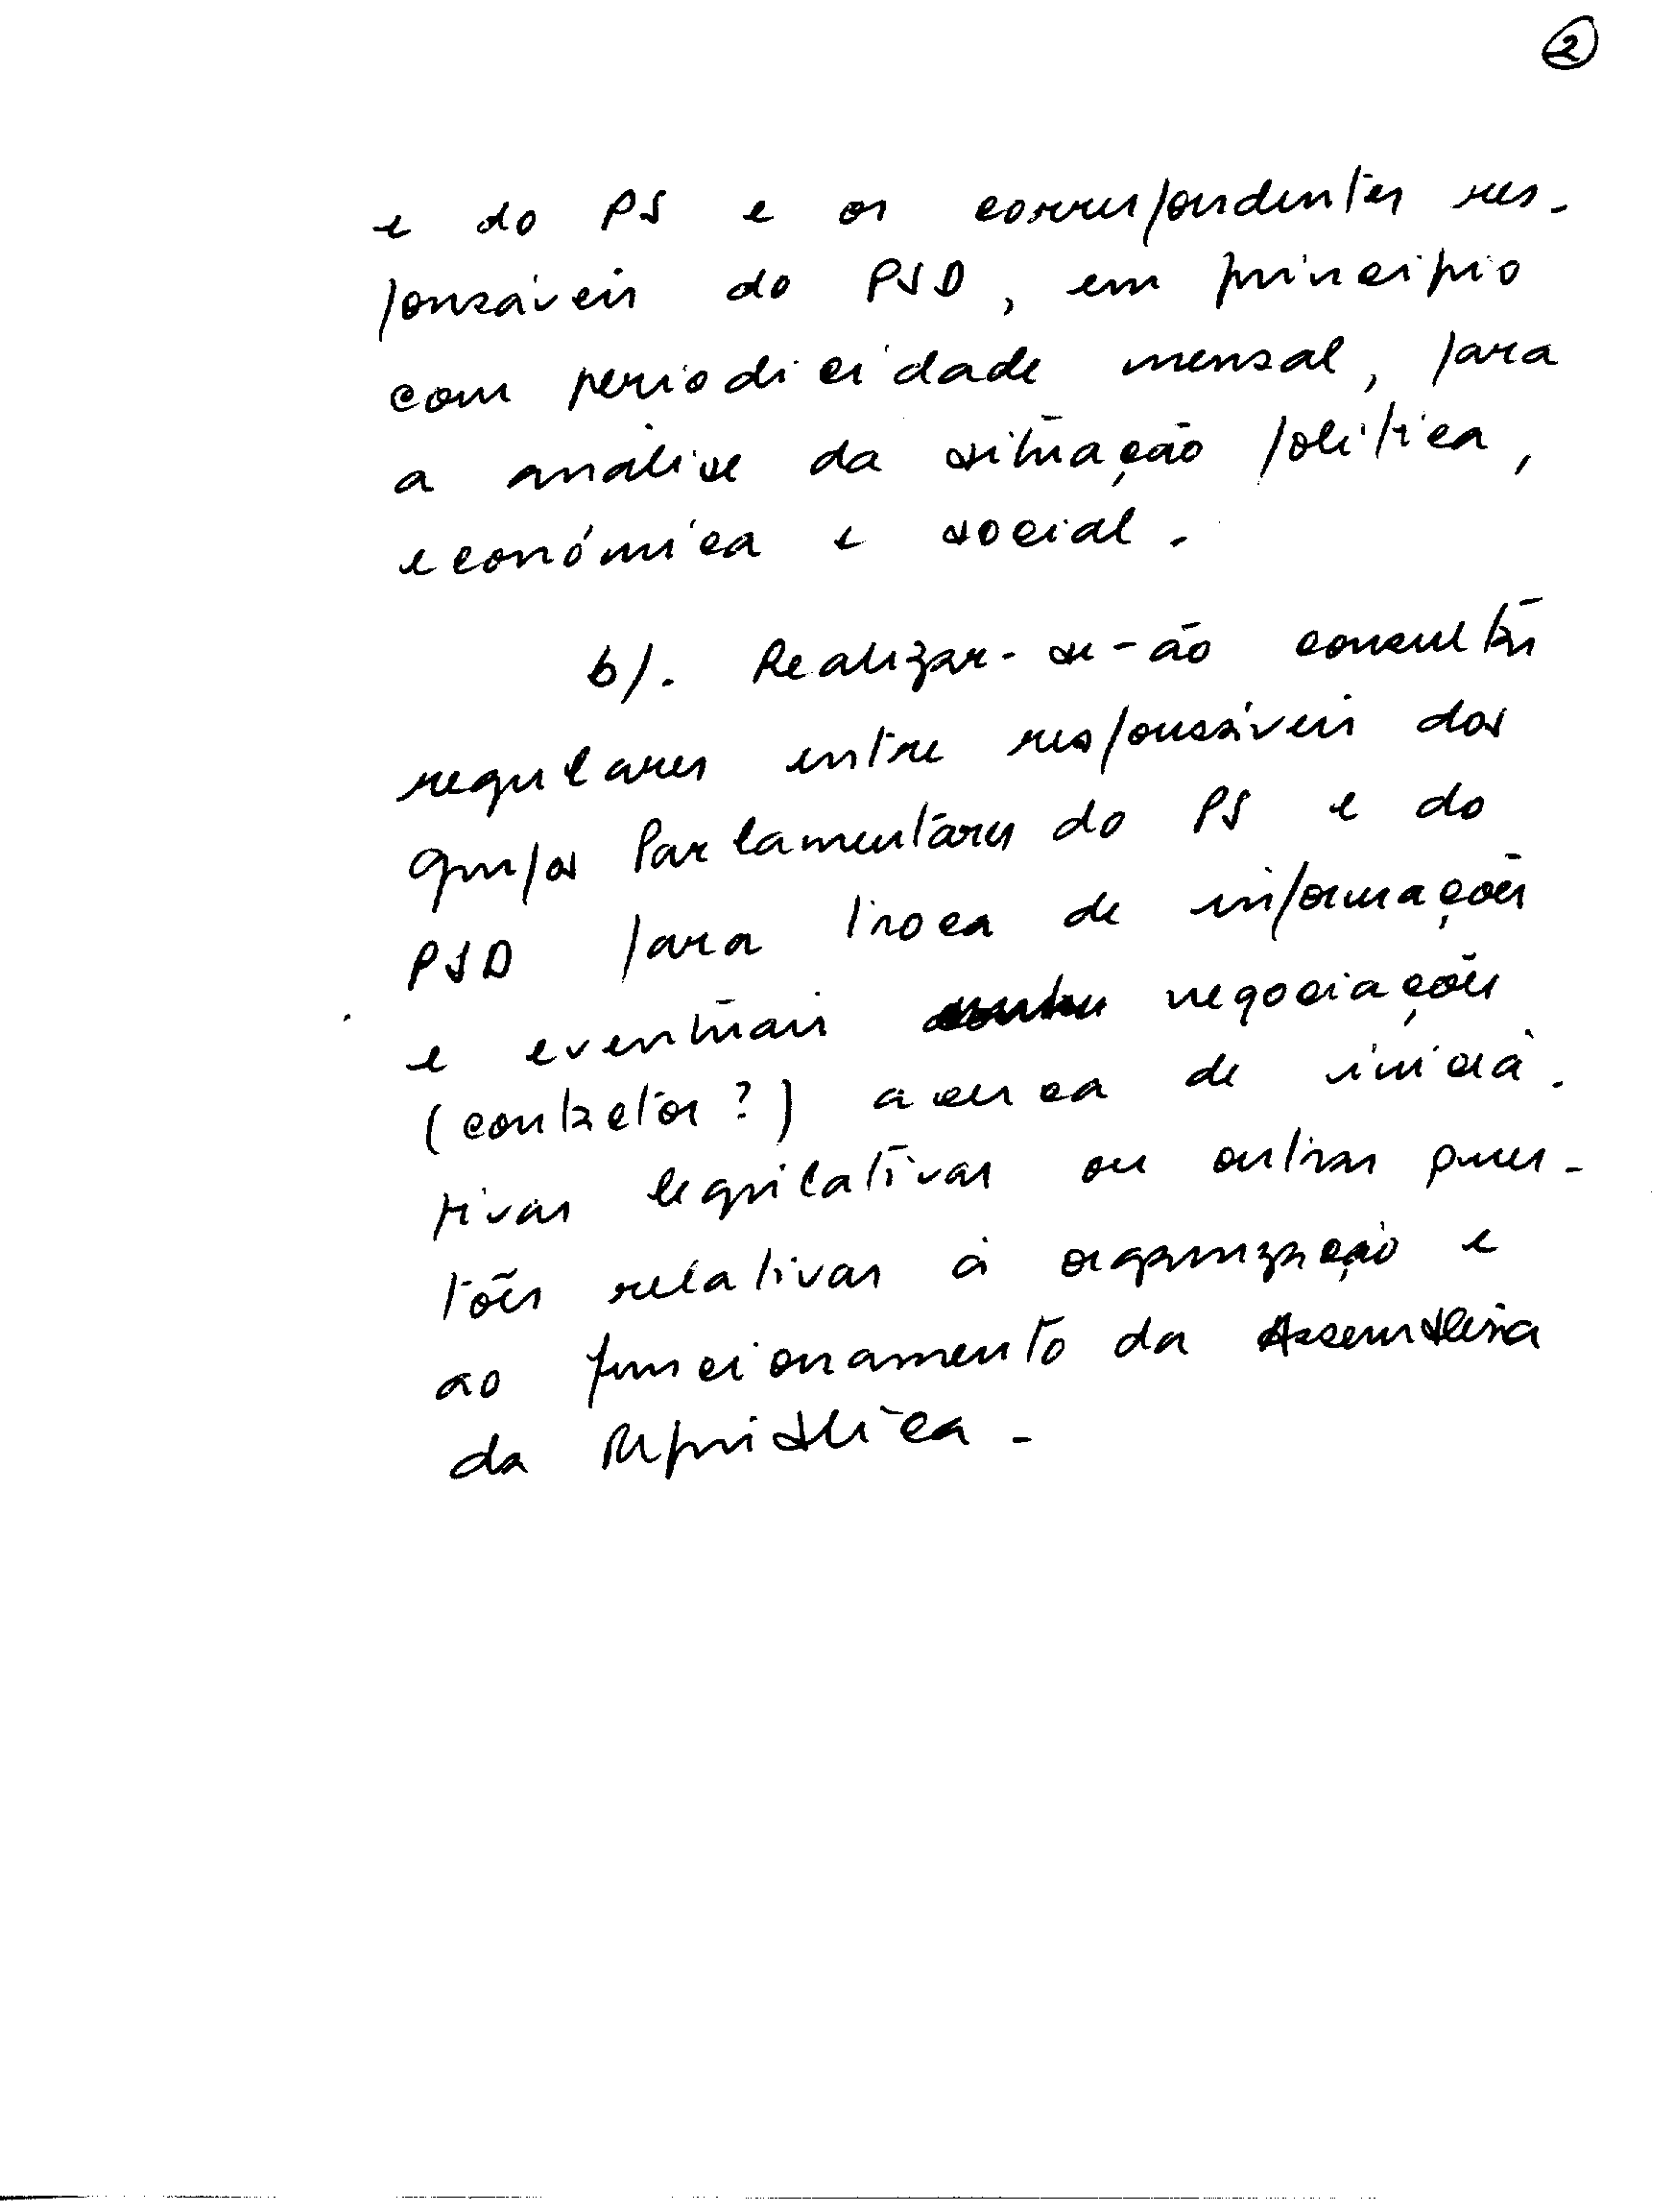 2
e do PS e os correspondentes res-
ponsáveis do PSD, em princípio
com periodicidade mensal, para
a análise da situação política,
económica e social.
b). Realizar-se-ão consultas
regulares entre responsáveis dos
Grupos Parlamentares do PS e do
PSD para troca de informações
e eventuais negociações
(contactos?) acerca de inicia-
tivas legislativas ou outras ques-
tões relativas à organização e
ao funcionamento da Assembleia
da República.